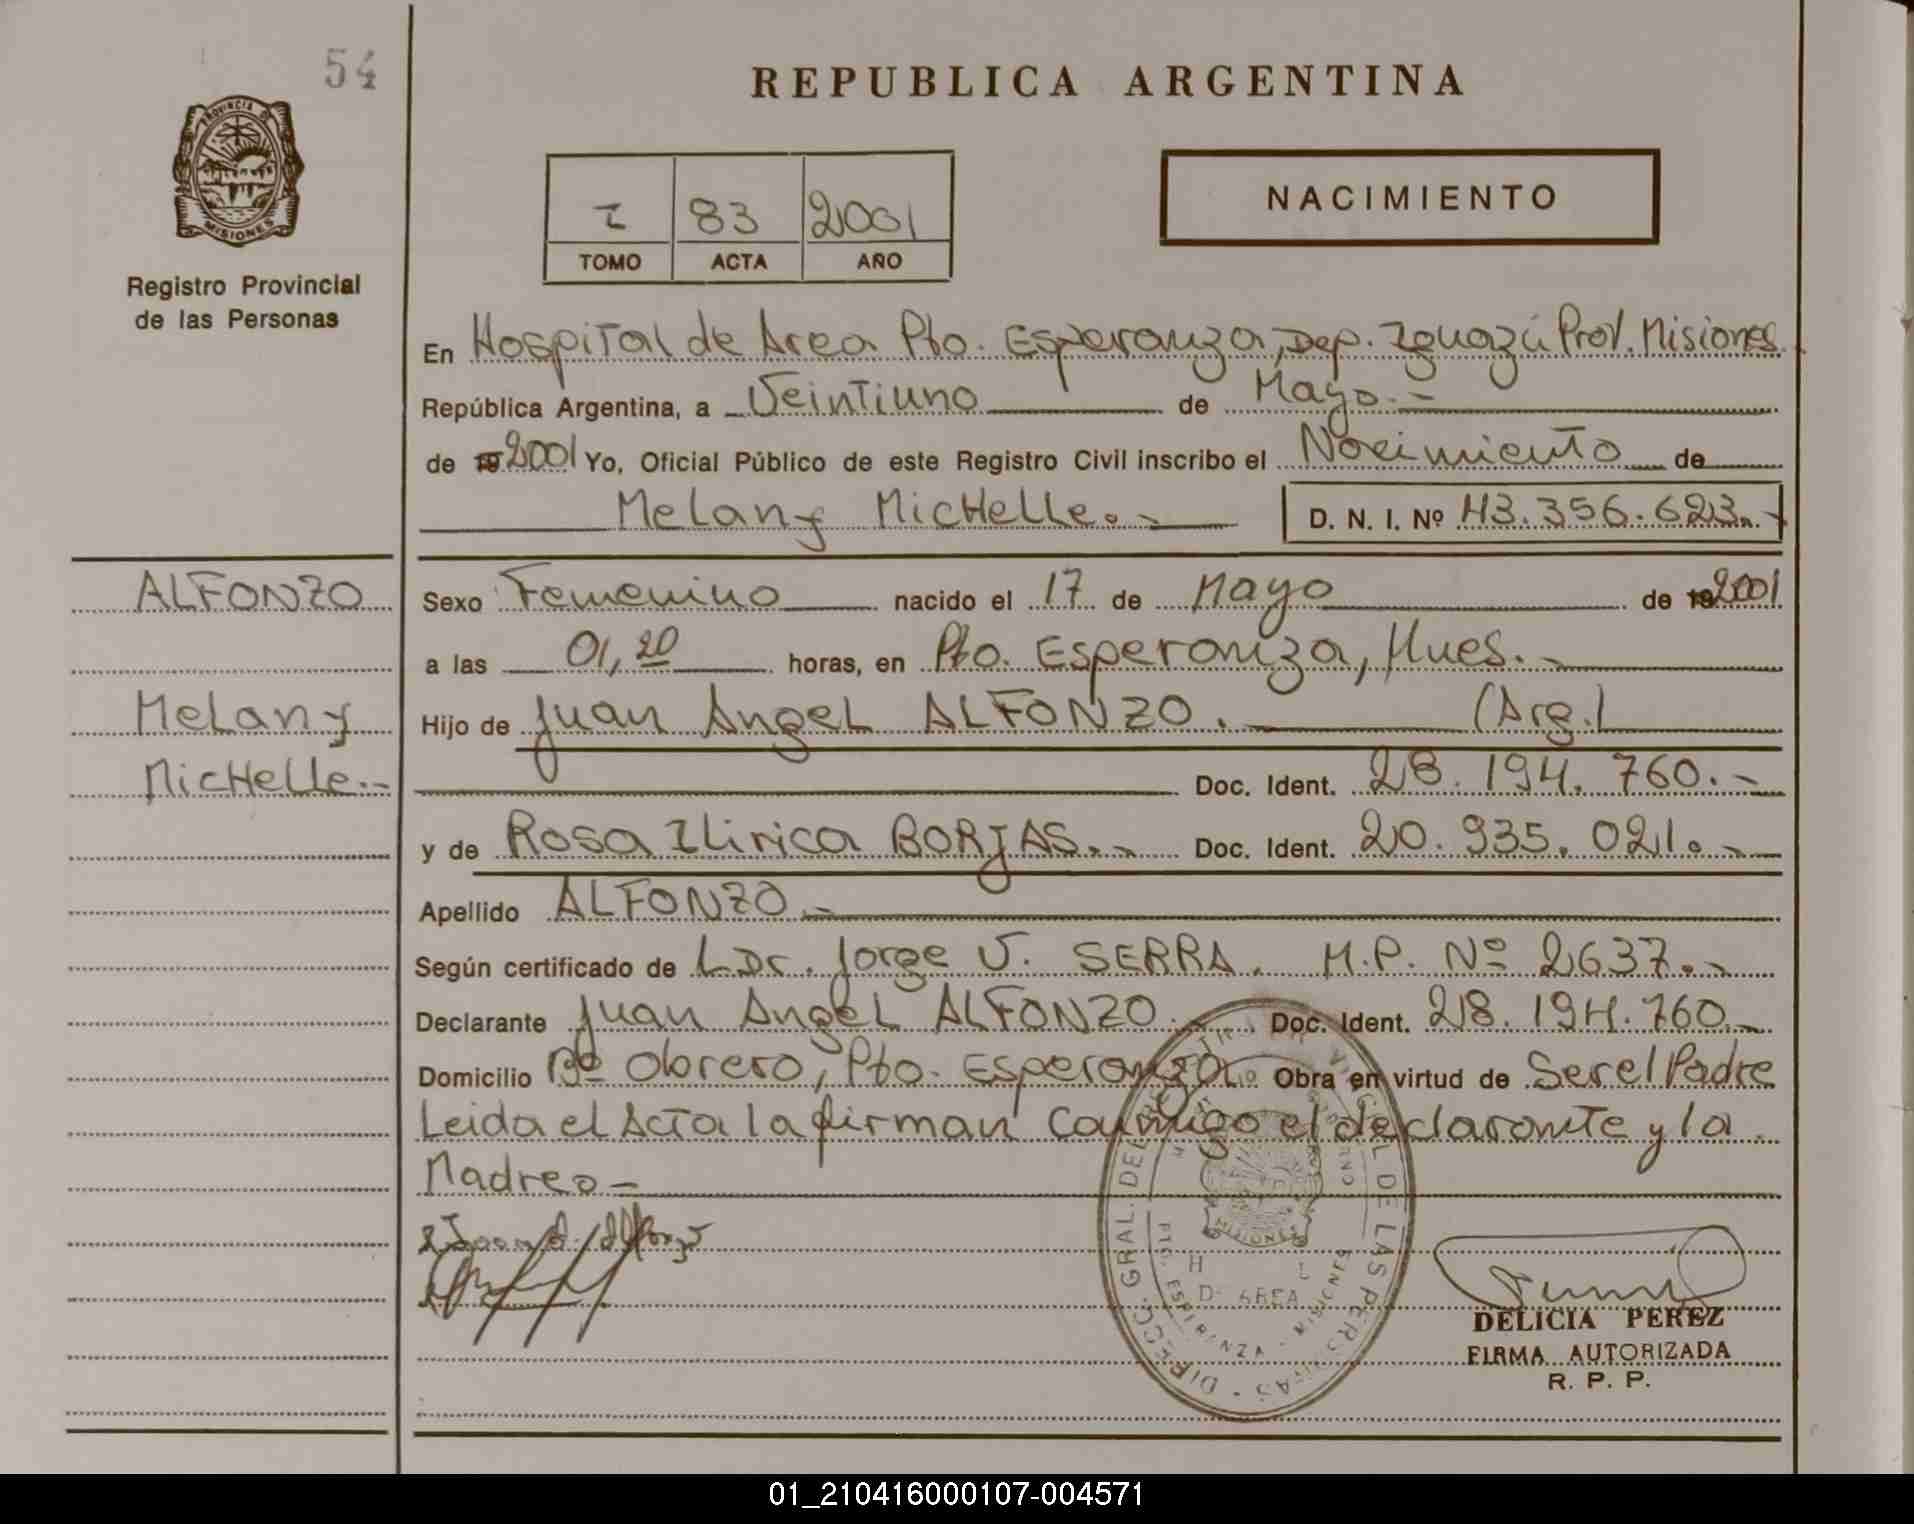 54
PROVINCIA DE
MISIONES
Registro Provincial
de las Personas
REPUBLICA ARGENTINA
I 83 2001
TOMO ACTA AÑO
NACIMIENTO
En Hospital de Area Pto. Esperanza, Dep. Iguazú Prov. Misiones
República Argentina, a Veintiuno de Mayo.-
de 19 2001 Yo, Oficial Público de este Registro Civil inscribo el Nacimiento de
Melany Michelle.- D. N. I. Nº 43.356.623.-
ALFONZO
Melany
Michelle.-
Sexo Femenino nacido el 17 de Mayo de 19 2001
a las 01,20 horas, en Pto. Esperanza, Mnes.-
Hijo de Juan Angel ALFONZO. (Arg.)
Doc. Ident. 28.194.760.-
y de Rosa Ilirica BORJAS.- Doc. Ident. 20.935.021.-
Apellido ALFONZO.-
Según certificado de Dr. Jorge V. SERRA. M.P. Nº 2637.-
Declarante Juan Angel ALFONZO. Doc. Ident. 28.194.760.-
Domicilio Bº Obrero, Pto. Esperanza Obra en virtud de Ser el Padre
Leida el Acta la firman conmigo el declarante y la
Madre.-
DIRECC. GRAL. DEL REGISTRO PROVINCIAL DE LAS PERSONAS
PTO. ESPERANZA - MISIONES
MISIONES
DE AREA
DELICIA PEREZ
FIRMA AUTORIZADA
R. P. P.
01_210416000107-004571